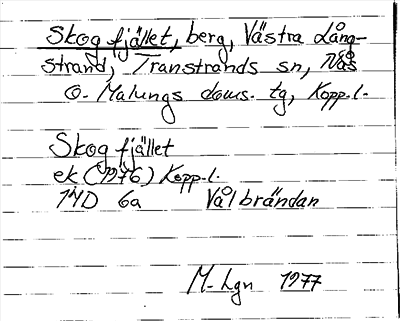 Skogfjället, berg, Västra Lång-
strand, Transtrands sn, Nås
o. Malungs doms. tg, Kopp.l.
Skogfjället
ek. (1976) Kopp.l.
14D 6a Vålbrändan
M. Lgn 1977